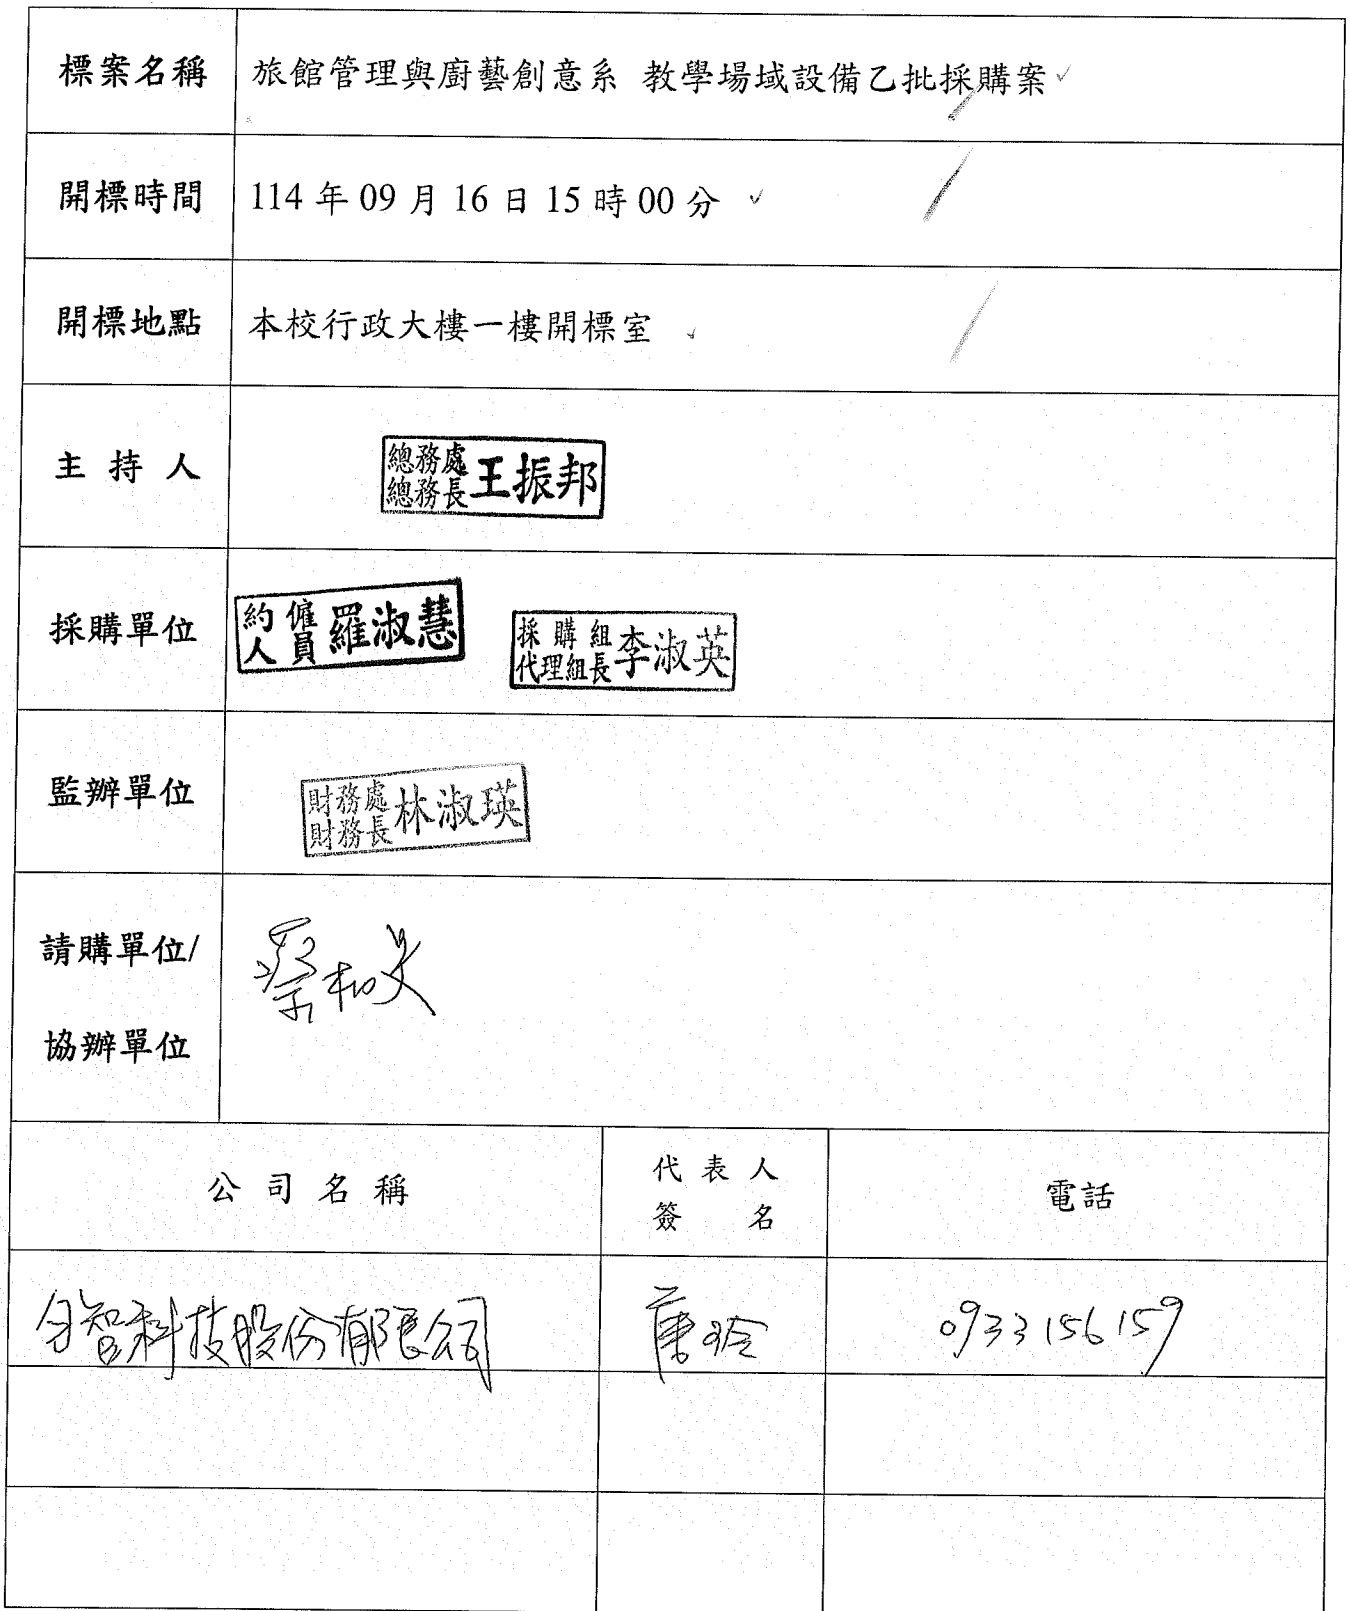 標案名稱 旅館管理與廚藝創意系 教學場域設備乙批採購案
開標時間 114 年 09 月 16 日 15 時 00 分
開標地點 本校行政大樓一樓開標室
主 持 人
總務處
總務長 王振邦
採購單位
約僱
人員 羅淑慧
採購組
代理組長 李淑英
監辦單位
財務處
財務長 林淑瑛
請購單位/
協辦單位
蔡
公司名稱 代表人 簽名 電話
智科技股份有限公司 0933156159